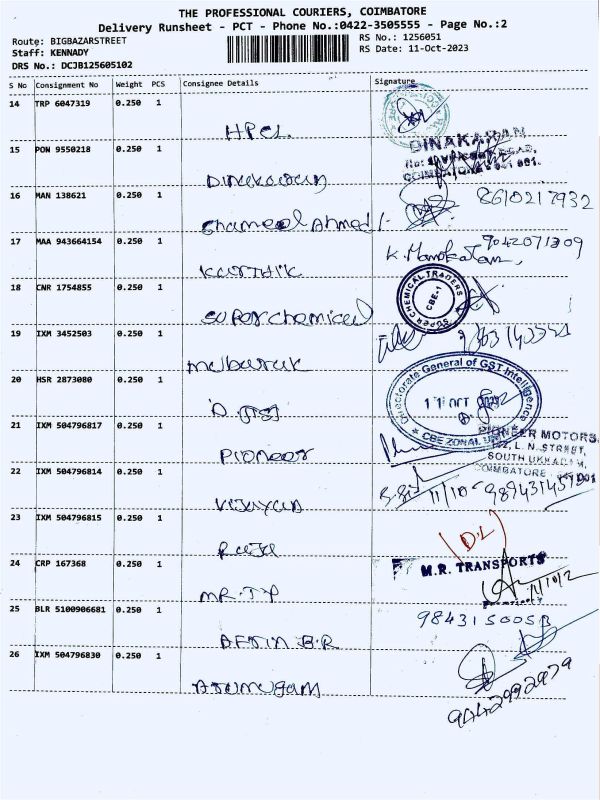 THE PROFESSIONAL COURIERS, COIMBATORE
Delivery Runsheet - PCT - Phone No.:0422-3505555 - Page No.:2
Route: BIGBAZARSTREET
Staff: KENNADY
DRS No.: DCJB125605102
RS No.: 1256051
RS Date: 11-Oct-2023
S No Consignment No Weight PCS Consignee Details Signature
14 TRP 6047319 0.250 1
HPCL
15 PON 9550218 0.250 1
DINAKARAN
COIMBATORE
Dinakaran
16 MAN 138621 0.250 1
8610217932
Ahmed
17 MAA 943664154 0.250 1
9042071309
Karthik
18 CNR 1754855 0.250 1
SUPER CHEMICAL TRADERS
CBE-1
Super chemical
19 IXM 3452503 0.250 1
Mubaruk
20 HSR 2873080 0.250 1
Directorate General of GST Intelligence
11 OCT
CBE ZONAL UNIT
D.
21 IXM 504796817 0.250 1
PIONEER MOTORS
L. N. STREET,
SOUTH UKKADAM,
COIMBATORE
Pioneer
22 IXM 504796814 0.250 1
11/10
Vijayan
23 IXM 504796815 0.250 1
Raja
(D.L)
24 CRP 167368 0.250 1
M.R. TRANSPORTS
MR. TP
25 BLR 5100906681 0.250 1
B.R
26 IXM 504796830 0.250 1
Arumugam
9442992979